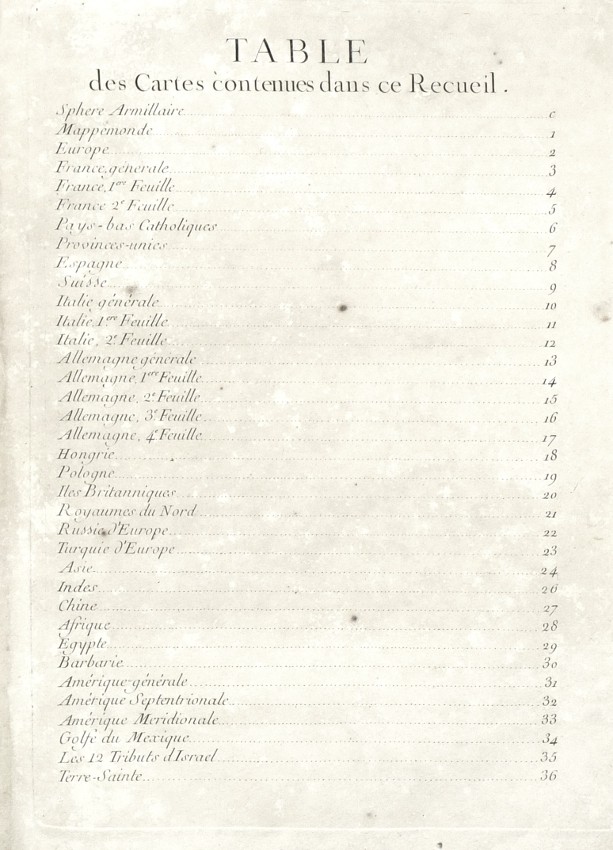 TABLE
des Cartes contenues dans ce Recueil.
Sphere Armillaire c
Mappemonde 1
Europe 2
France, générale 3
France, 1ere Feuille 4
France 2e Feuille 5
Pays-bas Catholiques 6
Provinces-unies 7
Espagne 8
Suisse 9
Italie générale 10
Italie, 1ere Feuille 11
Italie, 2e Feuille 12
Allemagne générale 13
Allemagne, 1ere Feuille 14
Allemagne, 2e Feuille 15
Allemagne, 3e Feuille 16
Allemagne, 4e Feuille 17
Hongrie 18
Pologne 19
Iles Britanniques 20
Royaumes du Nord 21
Russie d'Europe 22
Turquie d'Europe 23
Asie 24
Indes 26
Chine 27
Afrique 28
Egypte 29
Barbarie 30
Amérique générale 31
Amérique Septentrionale 32
Amérique Meridionale 33
Golfe du Mexique 34
Les 12 Tributs d'Israel 35
Terre-Sainte 36